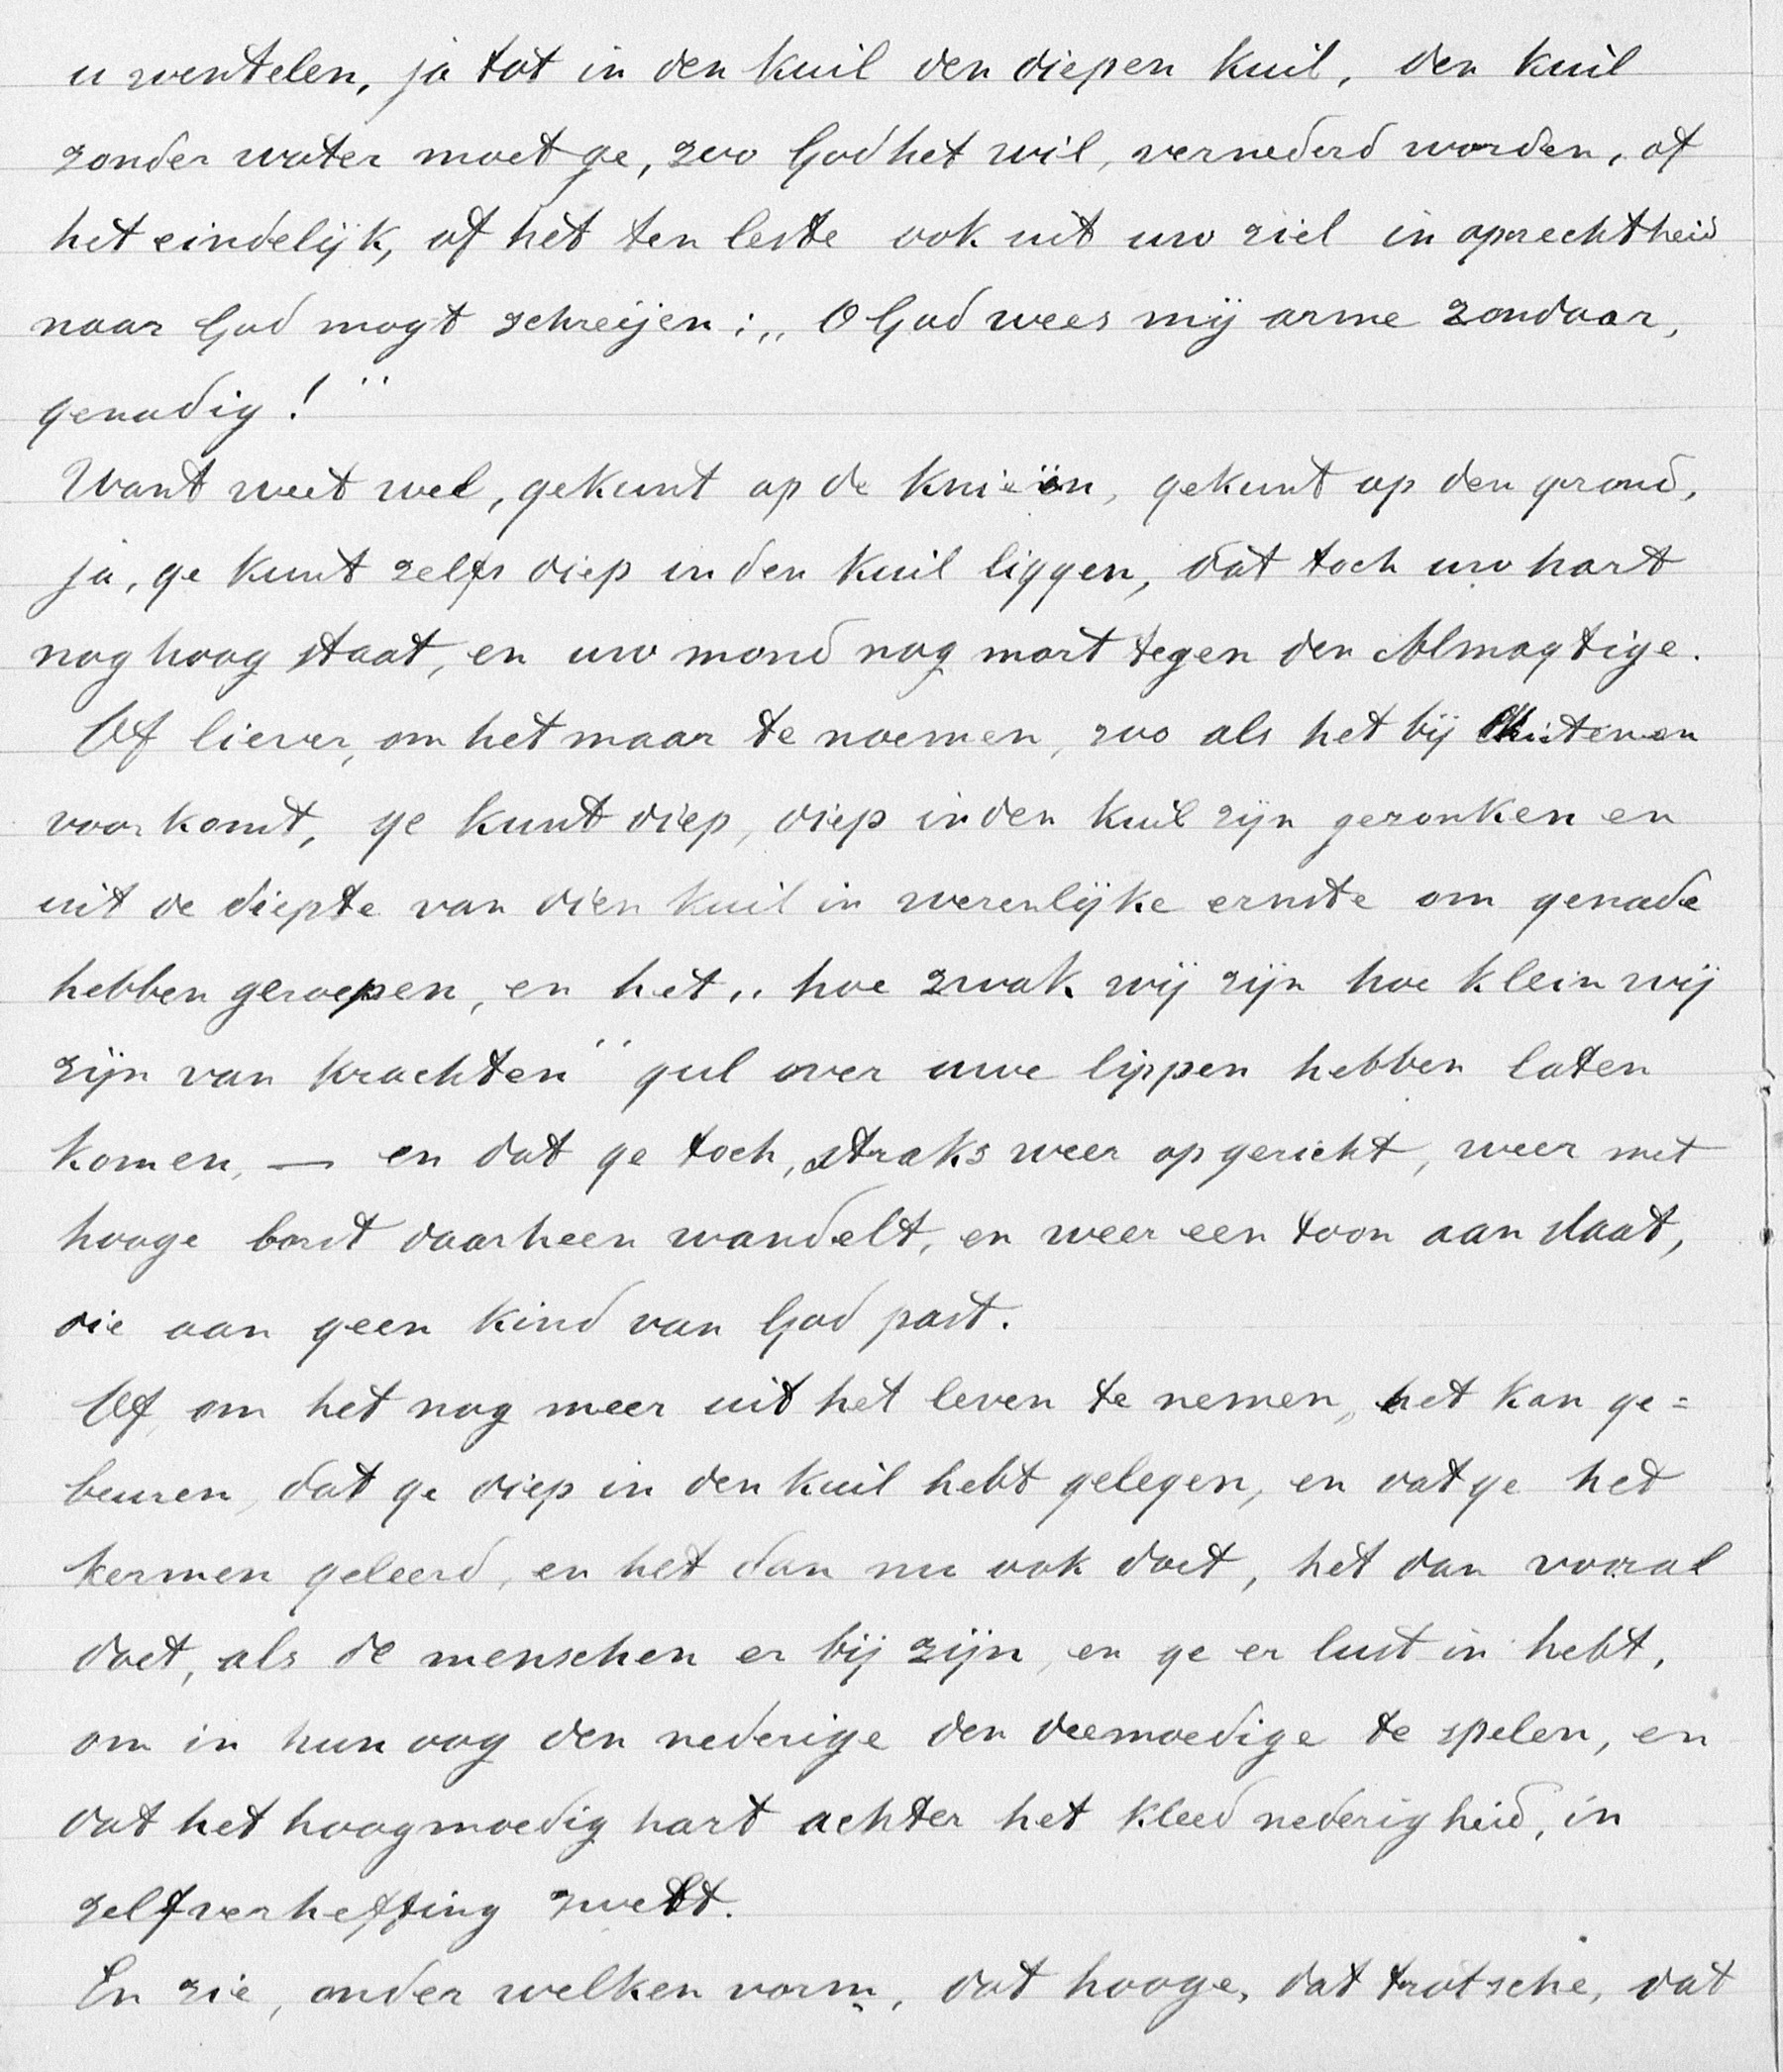 u wentelen, ja tot in den kuil den diepen kuil, den kuil
zonder water moet ge, zoo God het wil, vernederd worden, of
het eindelijk, of het ten leste ook uit uw ziel in oprechtheid
naar God mogt schreijen: „O God wees mij arme zondaar,
genadig!"
Want weet wel, ge kunt op de knieën, ge kunt op den grond,
ja, ge kunt zelfs diep in den kuil liggen, dat toch uw hart
nog hoog staat, en uw mond nog mort tegen den Almagtige.
Of liever, om het maar te noemen, zoo als het bij Christenen
voorkomt, ge kunt diep, diep in den kuil zijn gezonken en
uit de diepte van dien kuil in wezenlijke ernste om genade
hebben geroepen, en het „hoe zwak wij zijn hoe klein wij
zijn van krachten" gul over uwe lippen hebben laten
komen, — en dat ge toch, straks weer opgericht, weer met
hooge borst daarheen wandelt, en weer een toon aan slaat,
die aan geen kind van God past.
Of, om het nog meer uit het leven te nemen, het kan ge=
beuren, dat ge diep in den kuil hebt gelegen, en dat ge het
kermen geleerd, en het dan nu ook doet, het dan vooral
doet, als de menschen er bij zijn, en ge er lust in hebt,
om in hun oog den nederige den deemoedige te spelen, en
dat het hoogmoedig hart achter het kleed nederigheid, in
zelfverheffing zwelt.
En zie, onder welken vorm, dat hooge, dat trotsche, dat